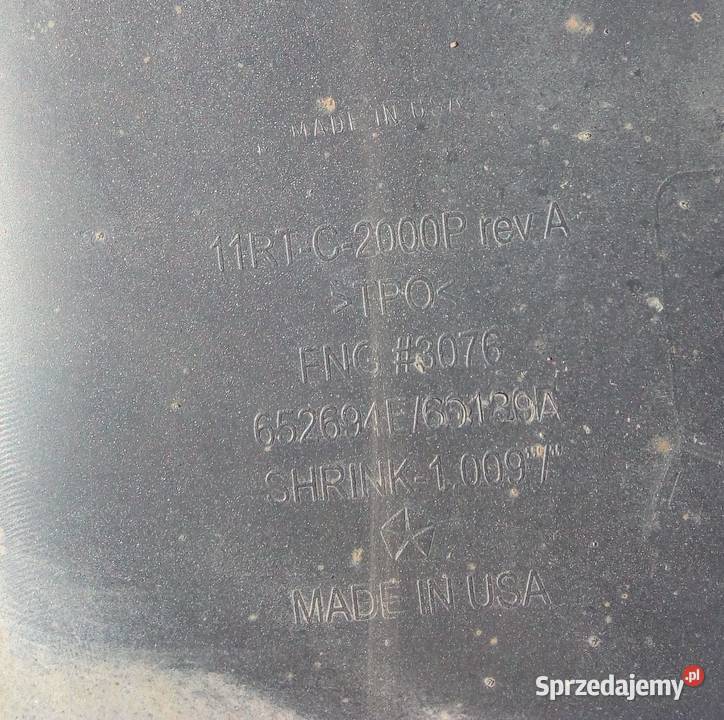 MADE IN USA
11RT-C-2000P rev.A
>TPO<
ENG #3076
652694E/65139A
SHRINK-1.009"/"
MADE IN USA
Sprzedajemy.pl